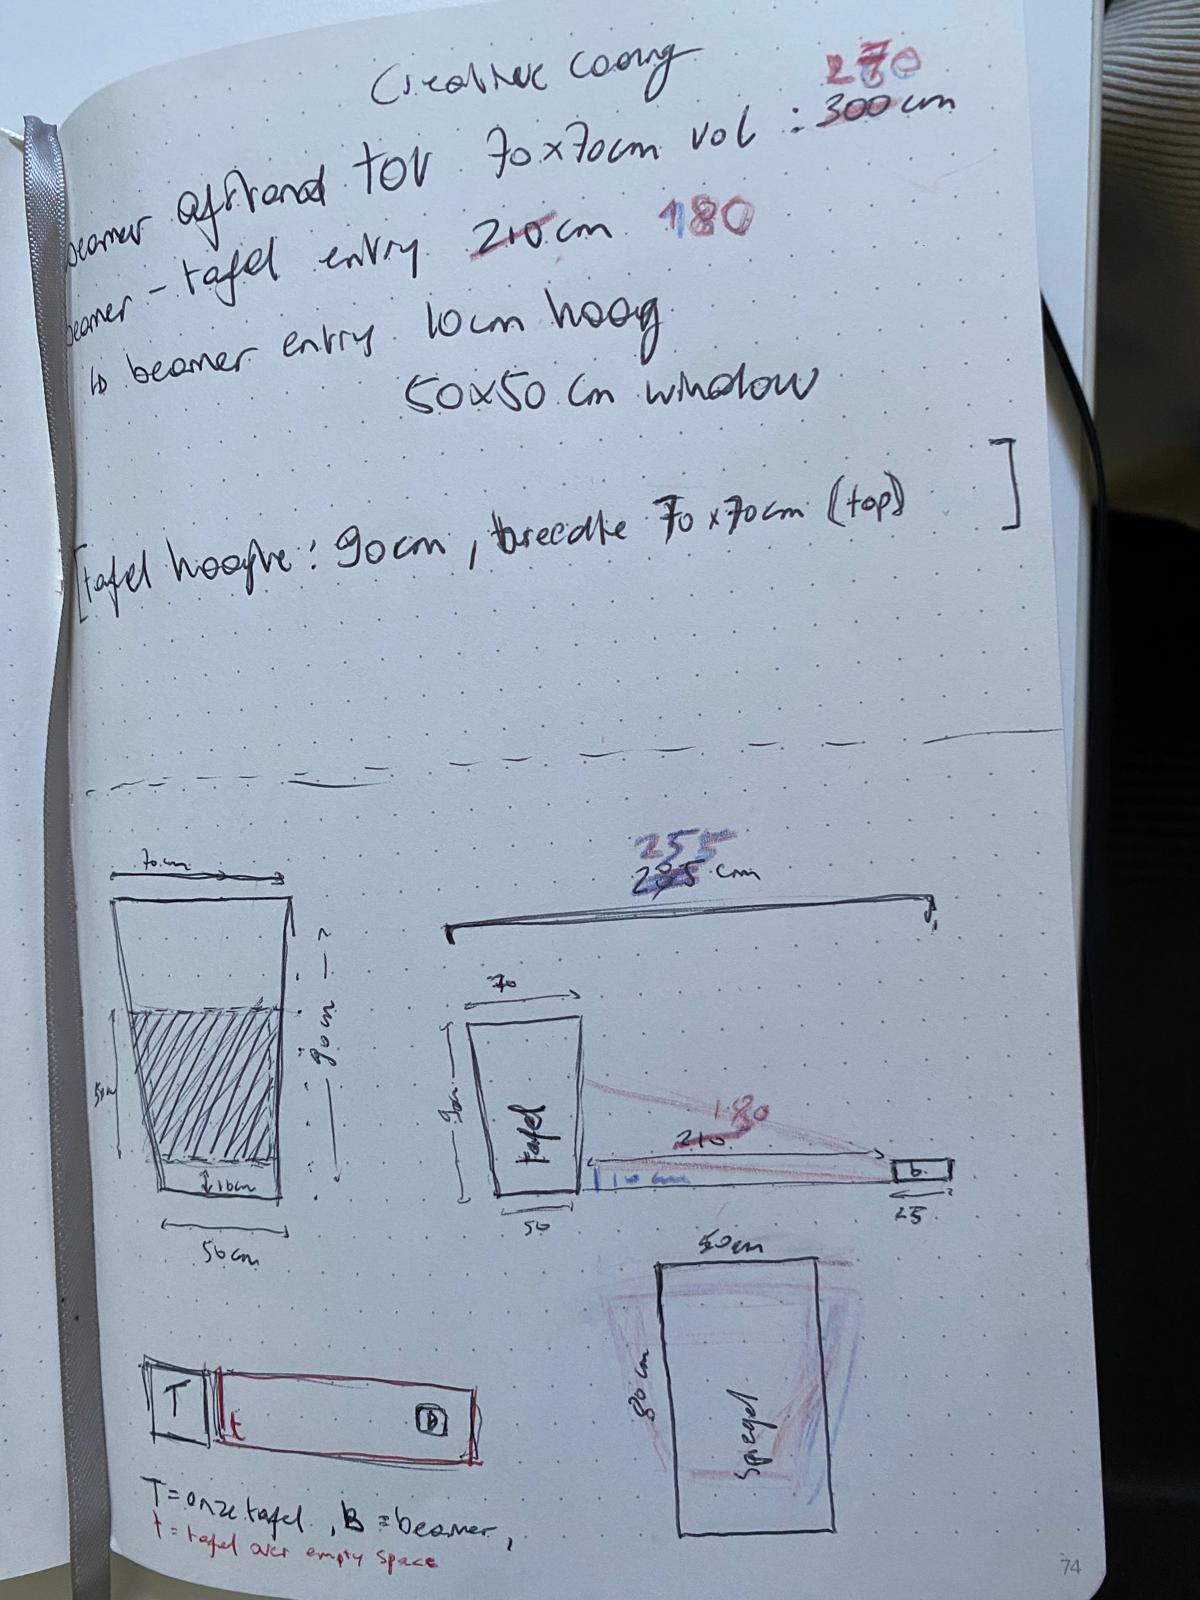 Creative coding
270
beamer afstand tot 70x70cm vol : 300cm
beamer - tafel entry 210cm 180
↳ beamer entry 10cm hoog
50x50 cm window
[tafel hoogte: 90cm, breedte 70x70cm (top) ]
70cm
90cm
50cm
10cm
50cm
255
cm
70
90cm
tafel
180
210
10 cm
b
50
25
50cm
80cm
spiegel
T
t
B
T=onze tafel, B=beamer,
t=tafel over empty space
74